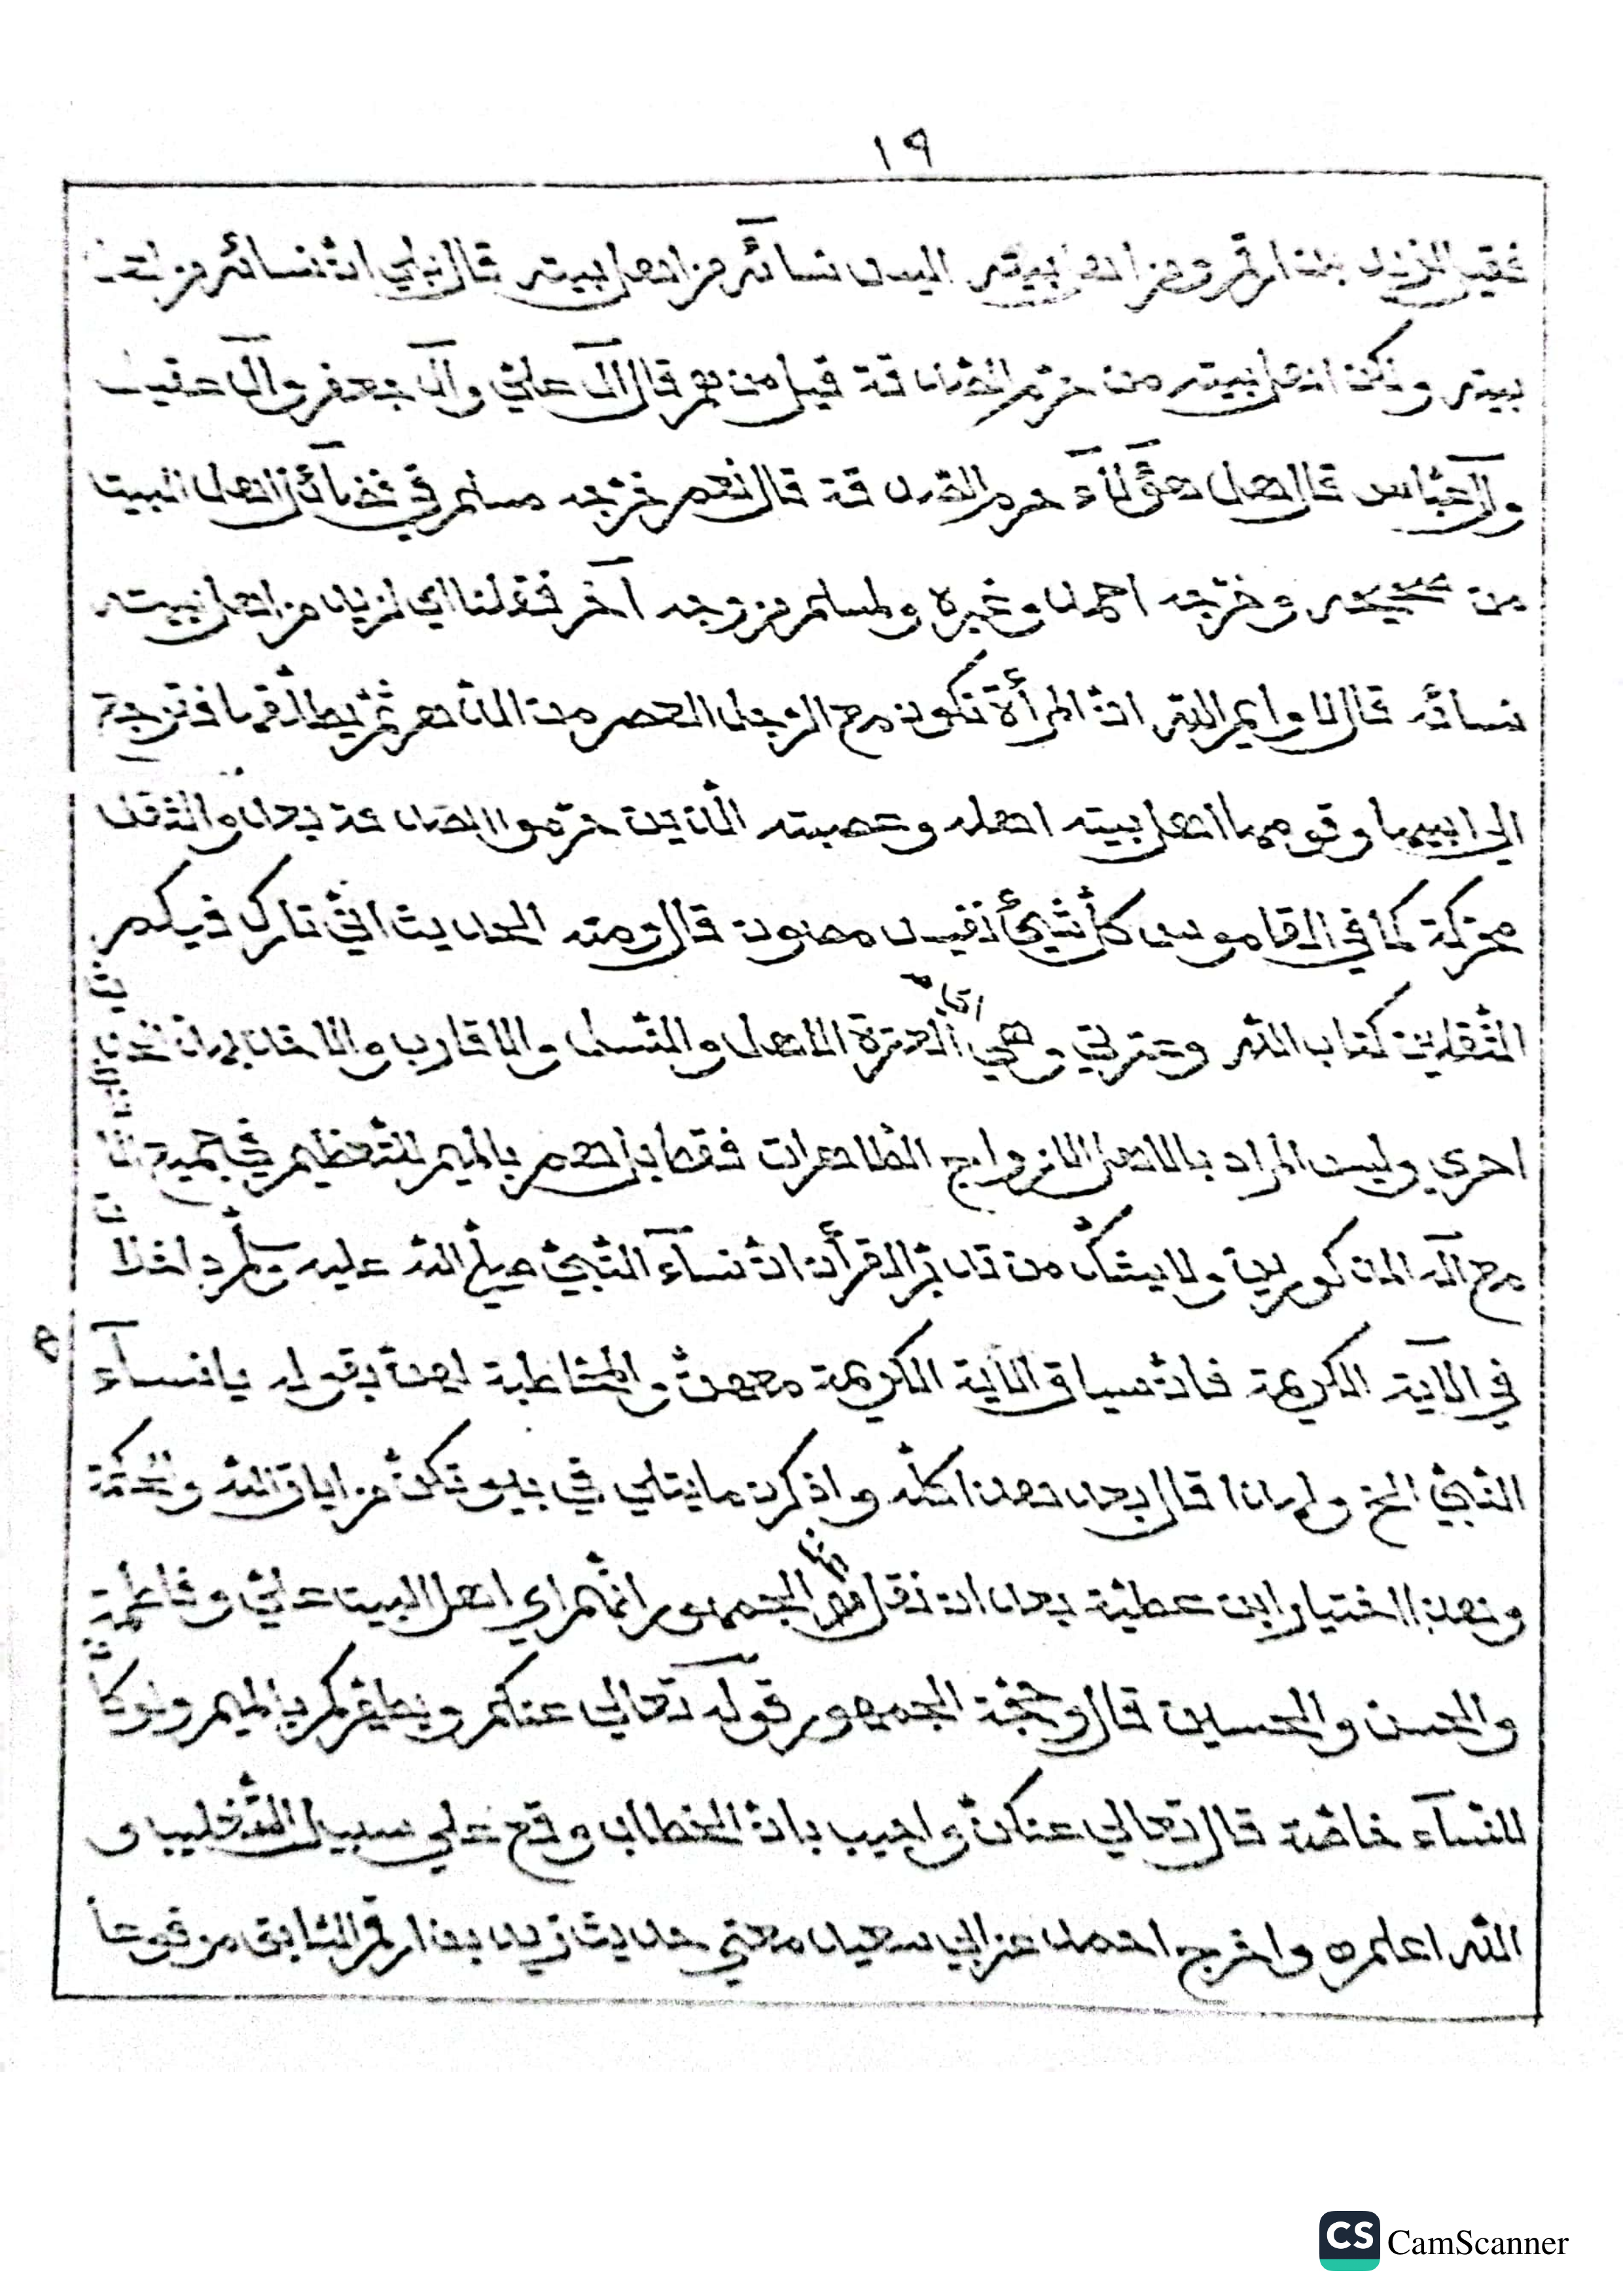 ١٩
فقيل لزيد بن ارقم ومن اهل بيته اليس نسائه من اهل بيته قال بلي ان نسائه من اهل
بيته ولكن اهل بيته من حرم الصدقة قيل من هم قال آل علي وآل جعفر وآل عقيل
وآل عباس قال اهل هؤلآء حرم الصدقة قال نعم خرجه مسلم في فضآئل اهل البيت
من صحيحه وخرجه احمد وغيره ولمسلم من وجه آخر فقلنا اي لزيد من اهل بيته
نسائه قال لا وايم الله ان المرأة تكون مع الرجل العصر من الدهر ثم يطلقها فترجع
الي ابيها وقومها اهل بيته اهله وعصبته الذين حرموا الصدقة بعده والثقل
محركة كما في القاموس كل شيئ نفيس مصون قال ومنه الحديث اني تارك فيكم
الثقلين كتاب الله وعترتي وهي اي العترة الاهل والنسل والاقارب والافخاذ
احري وليس المراد بالاهل الازواج الطاهرات فقط بل هم بالميم للتعظيم في جميع
مع آله المذكورين ولا يشك من تدبر القرآن ان نسآء النبي صلي الله عليه وسلم داخلا
في الآية الكريمة فان سياق الآية الكريمة معهن والمخاطبة لهن بقوله يا نسآء
النبي الخ ولهذا قال بعد هذا كله واذكرن ما يتلي في بيوتكن من ايات الله والحكمة
وهذا اختيار ابن عطية بعد ان نقل الجمهور انهم اي اهل البيت علي وفاطمة
والحسن والحسين قال وحجة الجمهور قوله تعالي عنكم ويطهركم بالميم ولو كان
للنسآء خاصة قال تعالي عنكن واجيب بان الخطاب وقع علي سبيل التغليب و
الله اعلم ه واخرج احمد عن ابي سعيد معني حديث زيد بن ارقم السابق مرفوعا
CS CamScanner